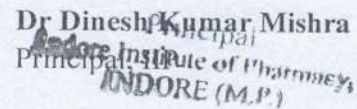 Dr Dinesh Kumar Mishra
Principal
Principal, IIP
Indore Institute of Pharmacy,
INDORE (M.P.)